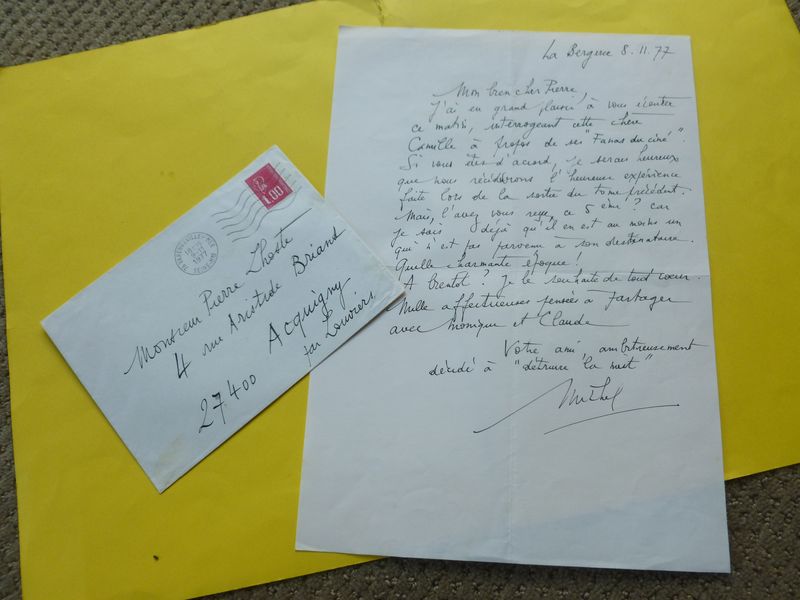 La Bergerie 8.11.77
Mon bien cher Pierre,
J'ai eu grand plaisir à vous écouter
ce matin, interrogeant cette chère
Camille à propos de ses "Fanas du ciné".
Si vous êtes d'accord, je serais heureux
que nous récidivions l'heureuse expérience
faite lors de la sortie du tome précédent.
Mais, l'avez vous reçu, ce 5 ème? car
je sais déjà qu'il en est au moins un
qui n'est pas parvenu à son destinataire.
Quelle charmante époque!
A bientôt? Je le souhaite de tout coeur.
Mille affectueuses pensées à partager
avec Monique et Claude
Votre ami, ambitieusement
décidé à "détruire la nuit"
Michel
1.00
1977
Monsieur Pierre Lhoste
4 rue Aristide Briand
Acquigny
par Louviers
27400